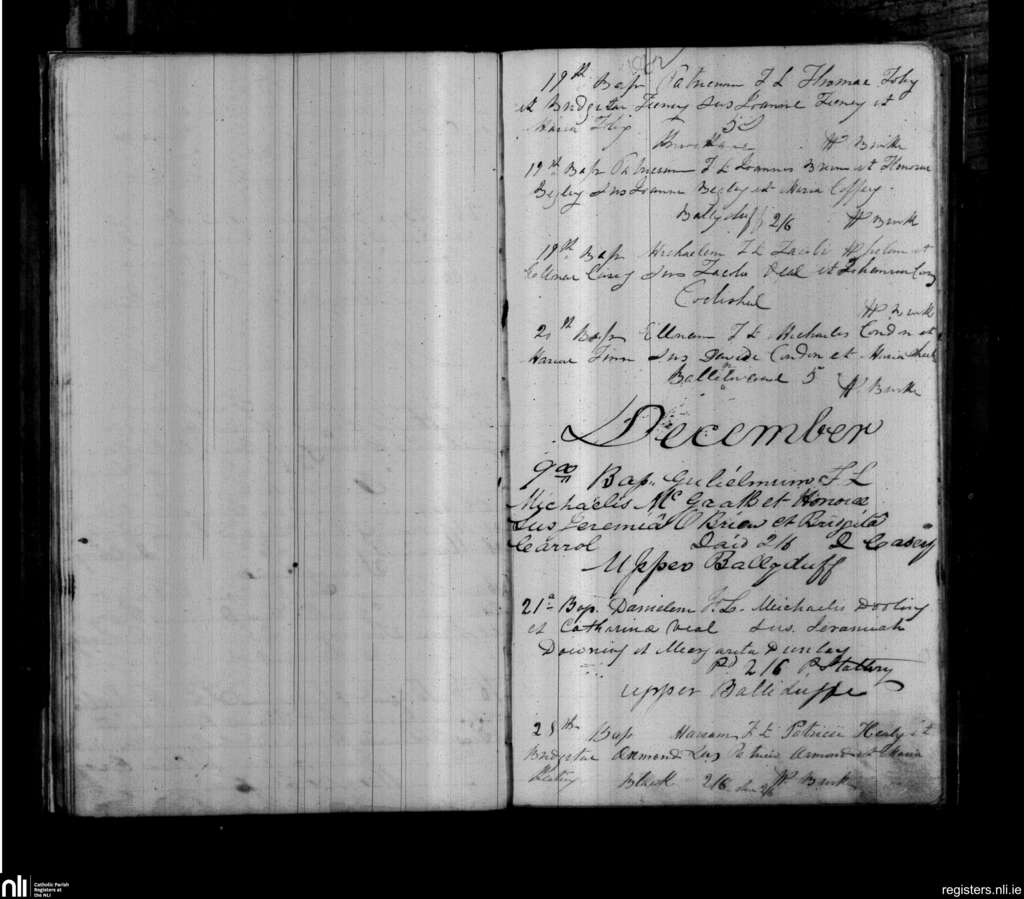 19th Bap Patricium F L Thomae Foby
et Bridgetae Feeney Sus Joanne Feeney et
Maria Foby 5
W Burke
19th Bap Patricium F L Joannis Brien et Honorae
Begley Sus Joanne Begley et Maria Coffey
Ballyduff 2/6 W Burke
19th Bap Michaelem F L Jacobi et
Ellenae Casey Sus Jacobo Veal et Johanna Casey
W Burke
21st Bap Ellenam F L Michaelis Condon et
Mariae Finn Sus Davide Condon et Maria
5 W Burke
December
9ao Bap. Gulielmum F L
Michaelis Mc Grath et Honorae
Sus Jeremiâ O'Brien et Brigitâ
Carrol Paid 2/6 D Casey
Upper Ballyduff
21a Bap. Danielem F. L. Meichaelis Dooling
et Catharinae Veal Sus. Jeramiah
Downing et Margarita Dunlay
Pd 2/6 P Slattery
upper Balliduffe
25th Bap Mariam F L Patricii Healy et
Bridgetae Ormond Sus Patricio Ormond et Maria
Keating Black 2/6 W Burke
nli
Catholic Parish
Registers at
the NLI
registers.nli.ie